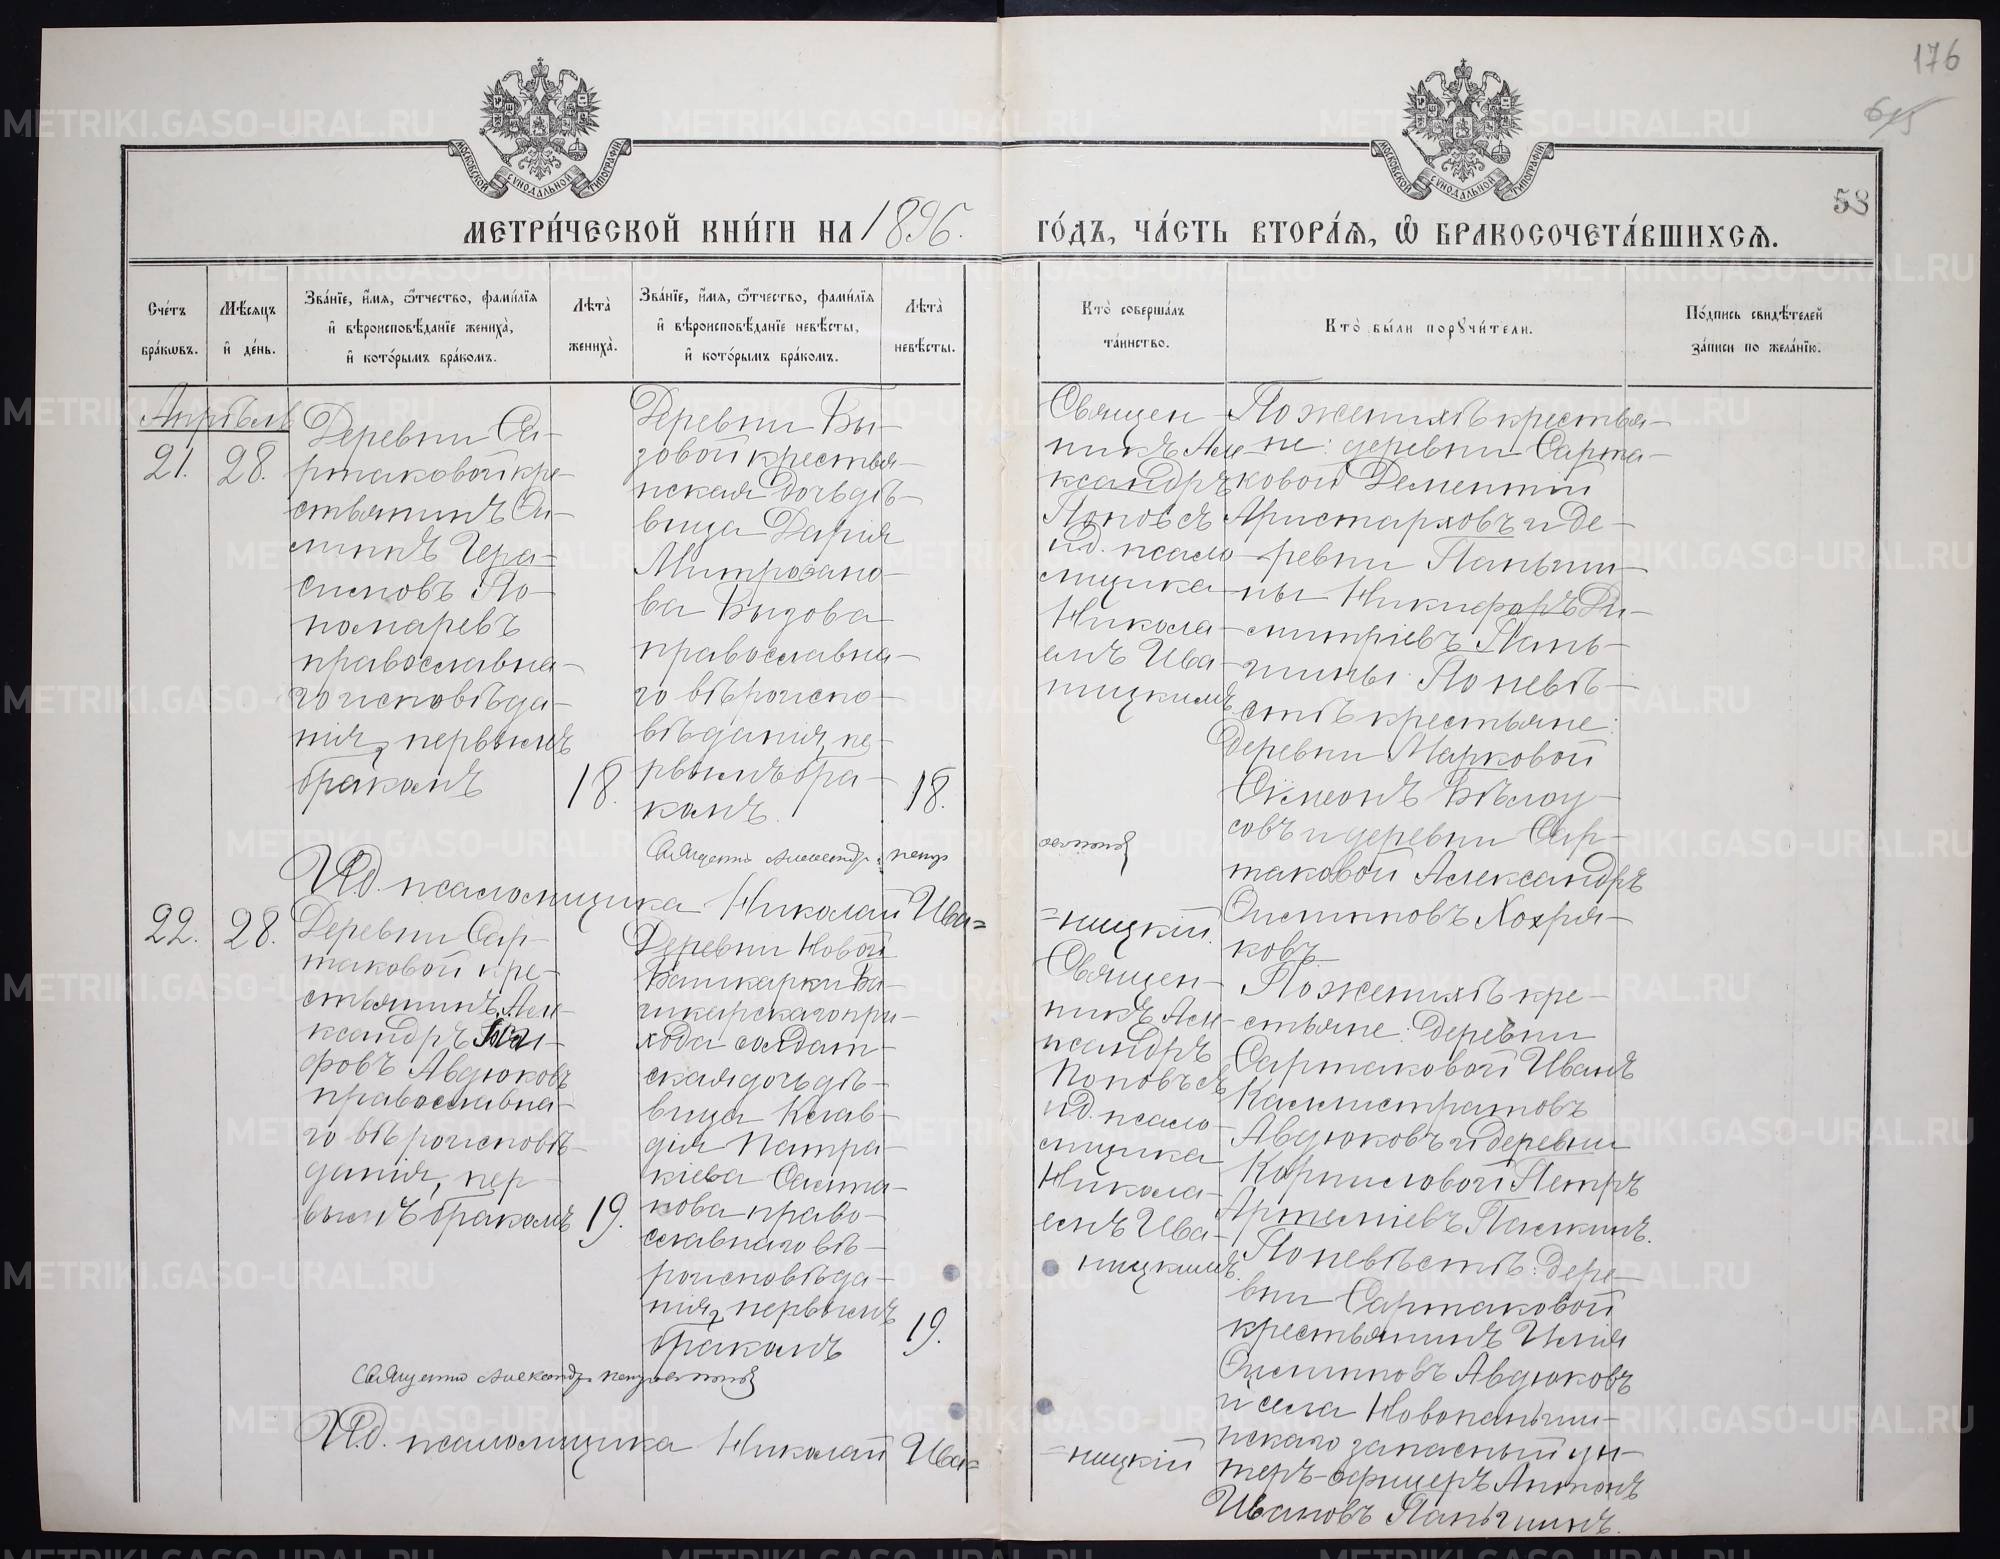 176
615
58
МОСКОВСКОЙ СУНОДАЛЬНОЙ ТИПОГРАФІИ
МОСКОВСКОЙ СУНОДАЛЬНОЙ ТИПОГРАФІИ
МЕТРИ́ЧЕСКОЙ КНИ́ГИ НА 1896.
ГО́ДЪ, ЧА́СТЬ ВТОРА́Я, Ѽ БРАКОСОЧЕТА́ВШИХСЯ.
Сче́тъ
бра́ковъ.
Мѣ́сяцъ
и҆ де́нь.
Зва́нїе, и҆́мя, ѻ҆́тчество, фами́лїя
и҆ вѣроисповѣ́данїе жениха̀,
и҆ кото́рымъ бра́комъ.
Лѣта̀
жениха̀.
Зва́нїе, и҆́мя, ѻ҆́тчество, фами́лїя
и҆ вѣроисповѣ́данїе невѣ́сты,
и҆ кото́рымъ бра́комъ.
Лѣта̀
невѣ́сты.
Кто̀ соверша́лъ
та́инство.
Кто̀ бы́ли порꙋчи́тели.
По́дпись свидѣ́телей
за́писи по жела́нїю.
Апрѣль
21.
28.
Деревни Са-
ртаковой кре-
стьянинъ
Гера-
симовъ По-
номаревъ
православна-
го исповѣда-
нія, первымъ
бракомъ
18.
Деревни Бы-
зовой крестья-
нская дочь дѣ-
вица Дарія
Митрофано-
ва Бызова
православна-
го вѣроиспо-
вѣданія, пе-
рвымъ бра-
комъ.
18.
Священ-
никъ Але-
ксандръ
Поповъ съ
и.д. псало-
мщика
Никола-
емъ Ива-
ницкимъ
По женихѣ крестья-
не: деревни Сарта-
ковой Дементій
Аристарховъ и де-
ревни Паньши-
ны Никифоръ Ди-
митріевъ Пань-
шины. По невѣ-
стѣ крестьяне:
Деревни Марковой
Сѵмеонъ Бѣлоу-
совъ и деревни Сар-
таковой Александръ
Хохря-
ковъ
Священникъ Александръ Поповъ
И.д. псаломщика Николай Ива=
=ницкій.
22.
28.
Деревни Сар-
таковой кре-
стьянинъ Але-
ксандръ
фовъ Авдюковъ
православна-
го вѣроисповѣ-
данія, пер-
вымъ бракомъ
19.
Деревни Новой
Башкарки Ба-
шкарскаго при-
хода солдат-
ская дочь дѣ-
вица Клав-
дія Патра-
кіева
православнаго вѣ-
роисповѣда-
нія, первымъ
бракомъ
19.
Священ-
никъ Але-
ксандръ
Поповъ съ
и.д. псало-
мщика
Никола-
емъ Ива-
ницкимъ.
По женихѣ кре-
стьяне: Деревни
Сартаковой Иванъ
Каллистратовъ
Авдюковъ и деревни
Корниловой Петръ
Артеміевъ
По невѣстѣ: дере-
вни Сартаковой
крестьянинъ Илія
Авдюковъ
и села Новопаньши-
нскаго запасный ун-
теръ-офицеръ Антонъ
Ивановъ Паньшинъ.
Священникъ Александръ Поповъ
И.д. псаломщика Николай Ива=
=ницкій
METRIKI.GASO-URAL.RU